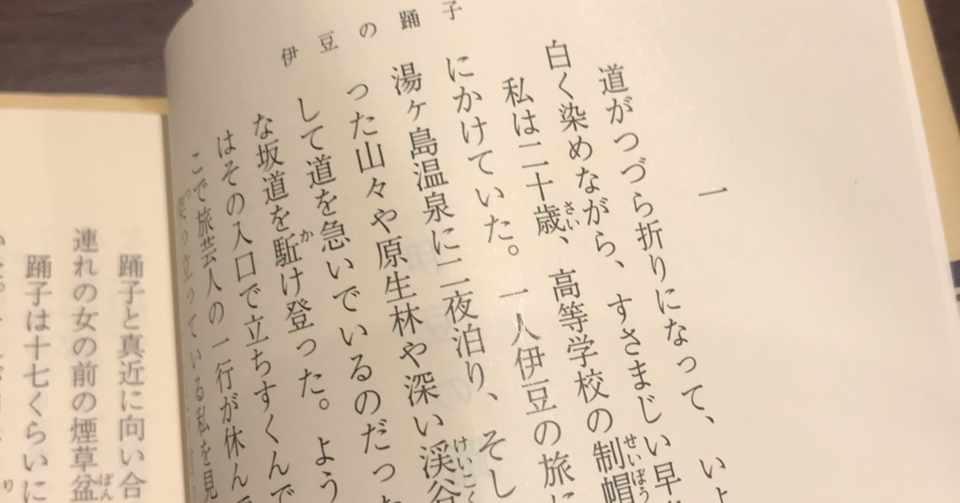 伊豆の踊子
一
道がつづら折りになって、いよ
白く染めながら、すさまじい早
さい
せいぼう
私は二十歳、高等学校の制帽
にかけていた。一人伊豆の旅に
湯ヶ島温泉に二夜泊り、そし
けいこく
った山々や原生林や深い渓谷
して道を急いでいるのだった
か
な坂道を駈け登った。よう
はその入口で立ちすくんで
こで旅芸人の一行が休んで
突っ立っている私を見
踊子と真近に向い合
ぼん
連れの女の前の煙草盆
踊子は十七くらいに